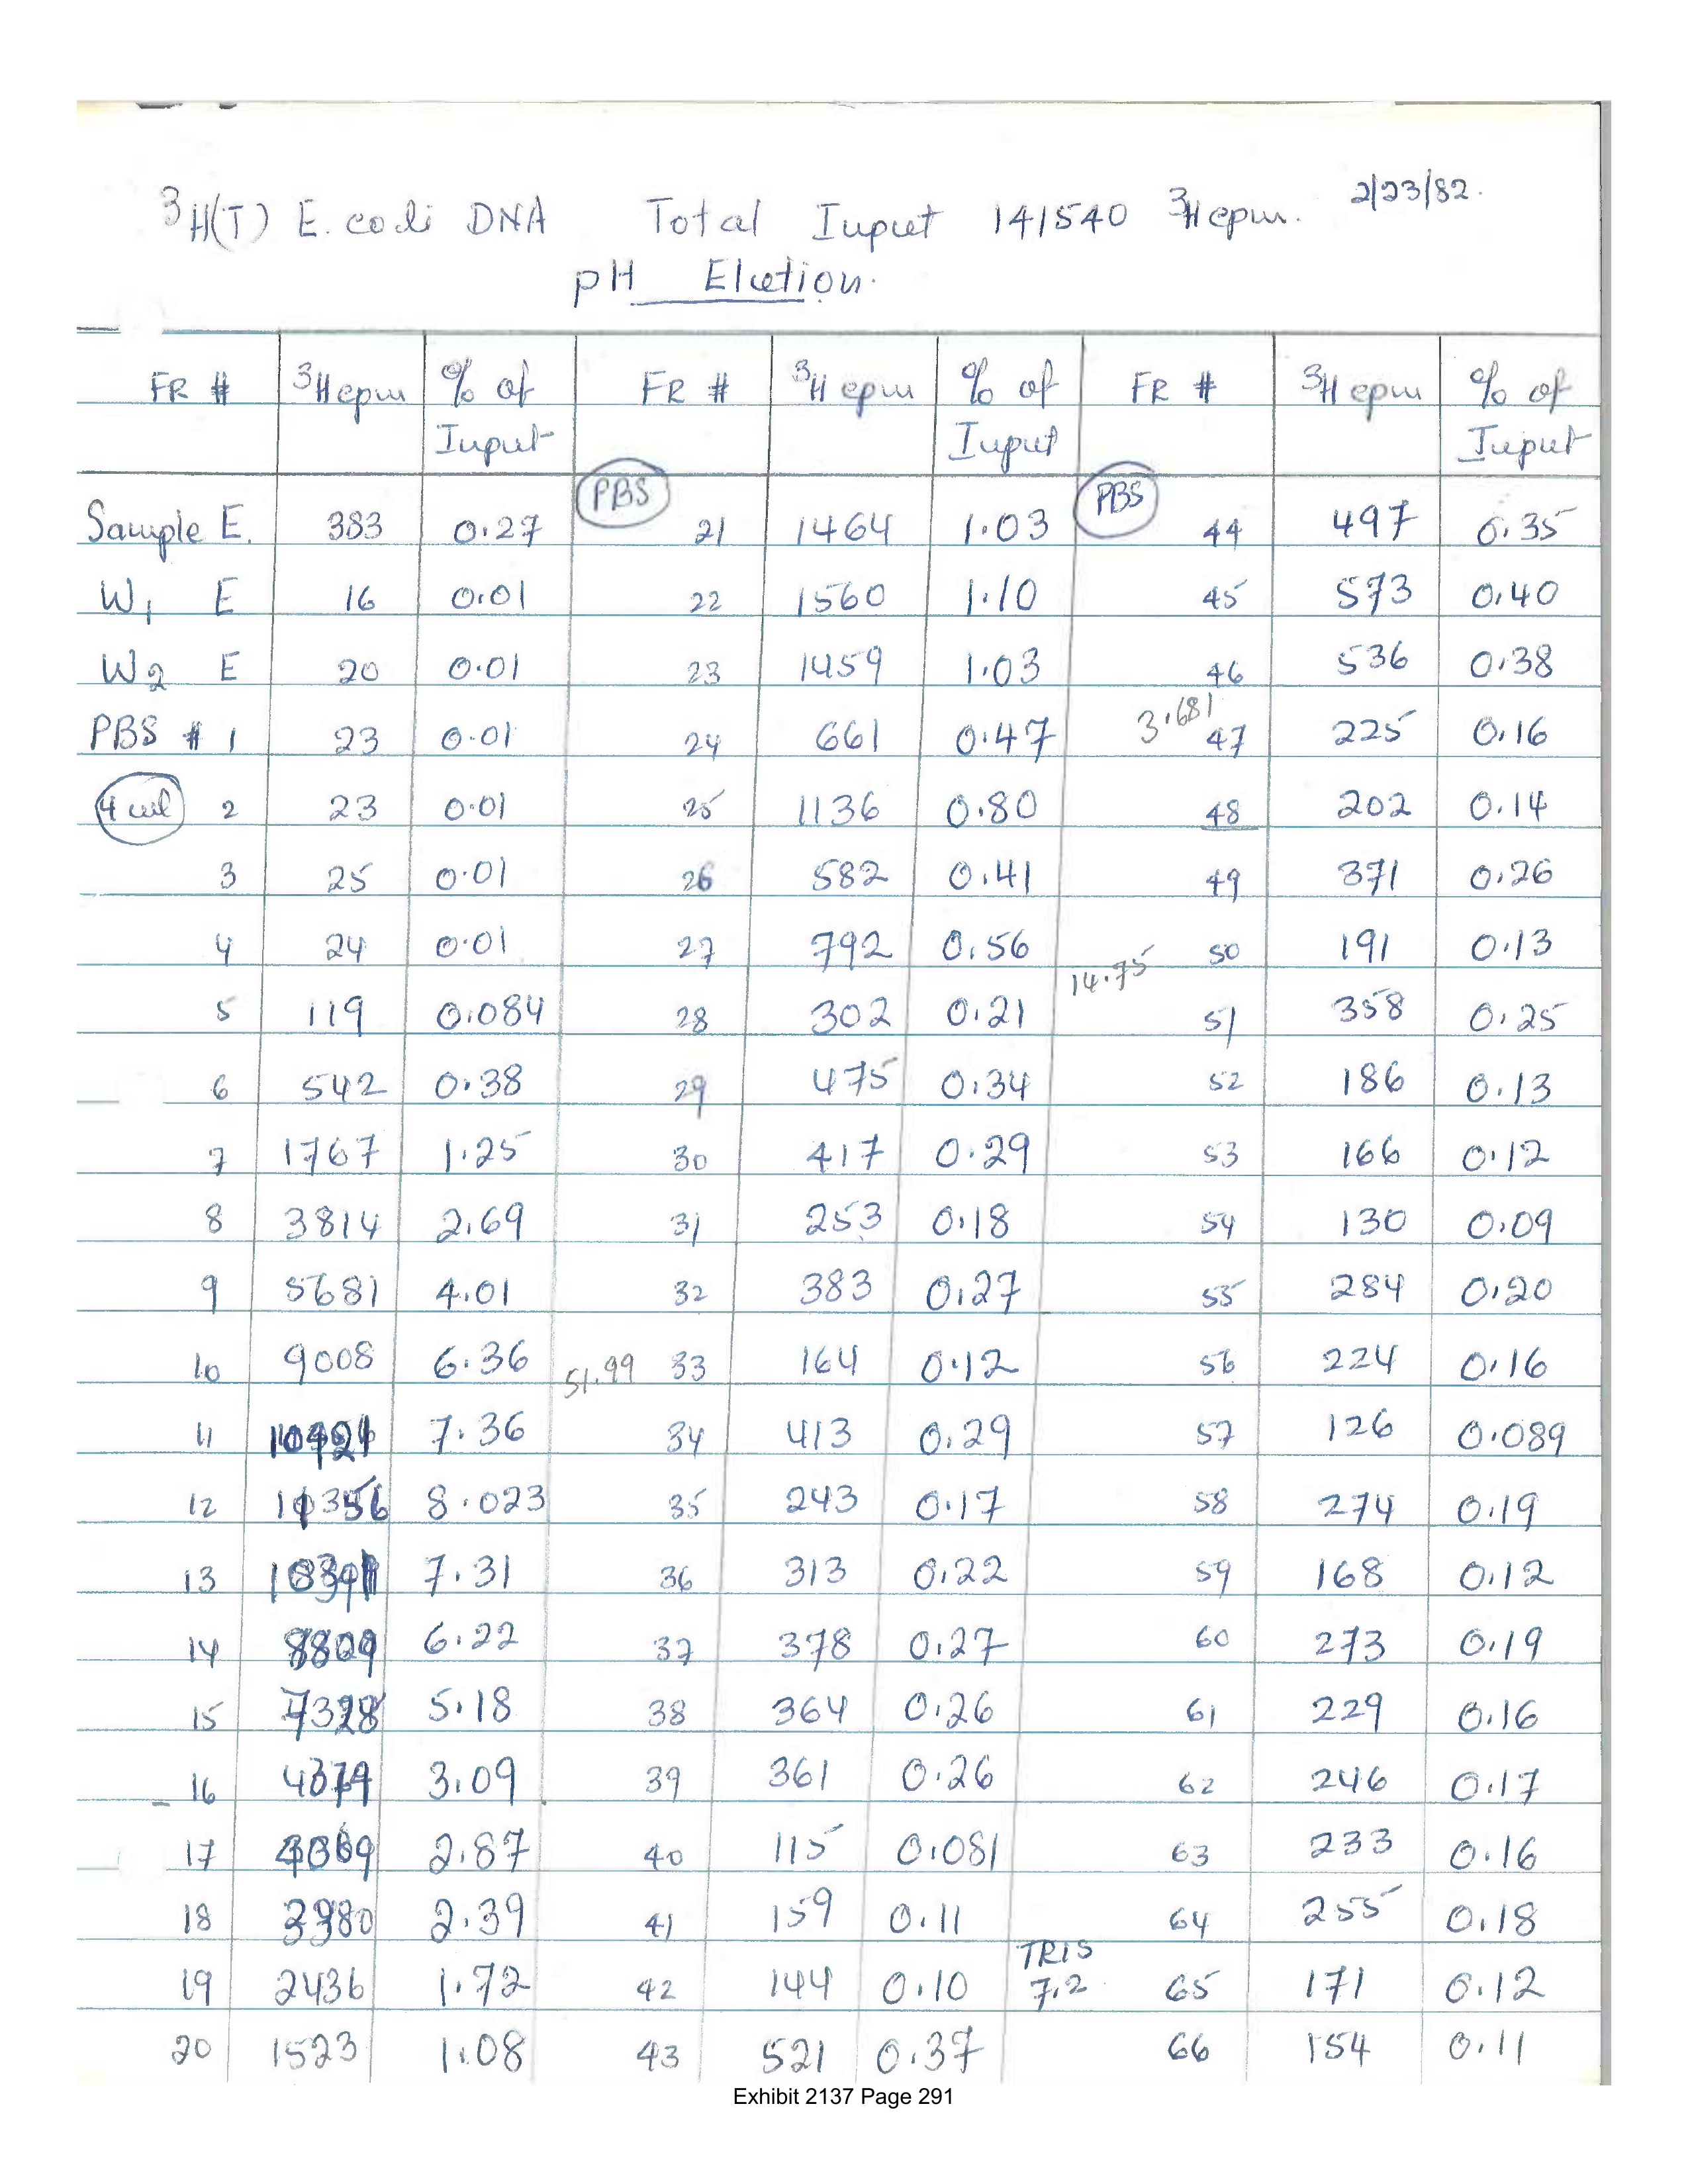 ³H(T) E. coli DNA Total Input 141540 ³H cpm. 2/23/82.
pH Elution.
FR # ³H cpm % of Input FR # ³H cpm % of Input FR # ³H cpm % of Input
PBS PBS
Sample E. 383 0.27 21 1464 1.03 44 497 0.35
W1 E 16 0.01 22 1560 1.10 45 573 0.40
W2 E 20 0.01 23 1459 1.03 46 536 0.38
PBS # 1 23 0.01 24 661 0.47 3.681 47 225 0.16
4 ml 2 23 0.01 25 1136 0.80 48 202 0.14
3 25 0.01 26 582 0.41 49 371 0.26
4 24 0.01 27 792 0.56 50 191 0.13
14.75
5 119 0.084 28 302 0.21 51 358 0.25
6 542 0.38 29 475 0.34 52 186 0.13
7 1767 1.25 30 417 0.29 53 166 0.12
8 3814 2.69 31 253 0.18 54 130 0.09
9 5681 4.01 32 383 0.27 55 284 0.20
10 9008 6.36 51.99 33 164 0.12 56 224 0.16
11 7.36 34 413 0.29 57 126 0.089
12 11356 8.023 35 243 0.17 58 274 0.19
13 7.31 36 313 0.22 59 168 0.12
14 8809 6.22 37 378 0.27 60 273 0.19
15 7328 5.18 38 364 0.26 61 229 0.16
16 4379 3.09 39 361 0.26 62 246 0.17
17 4069 2.87 40 115 0.081 63 233 0.16
18 3380 2.39 41 159 0.11 64 255 0.18
19 2436 1.72 42 144 0.10 TRIS 7.2 65 171 0.12
20 1523 1.08 43 521 0.37 66 154 0.11
Exhibit 2137 Page 291